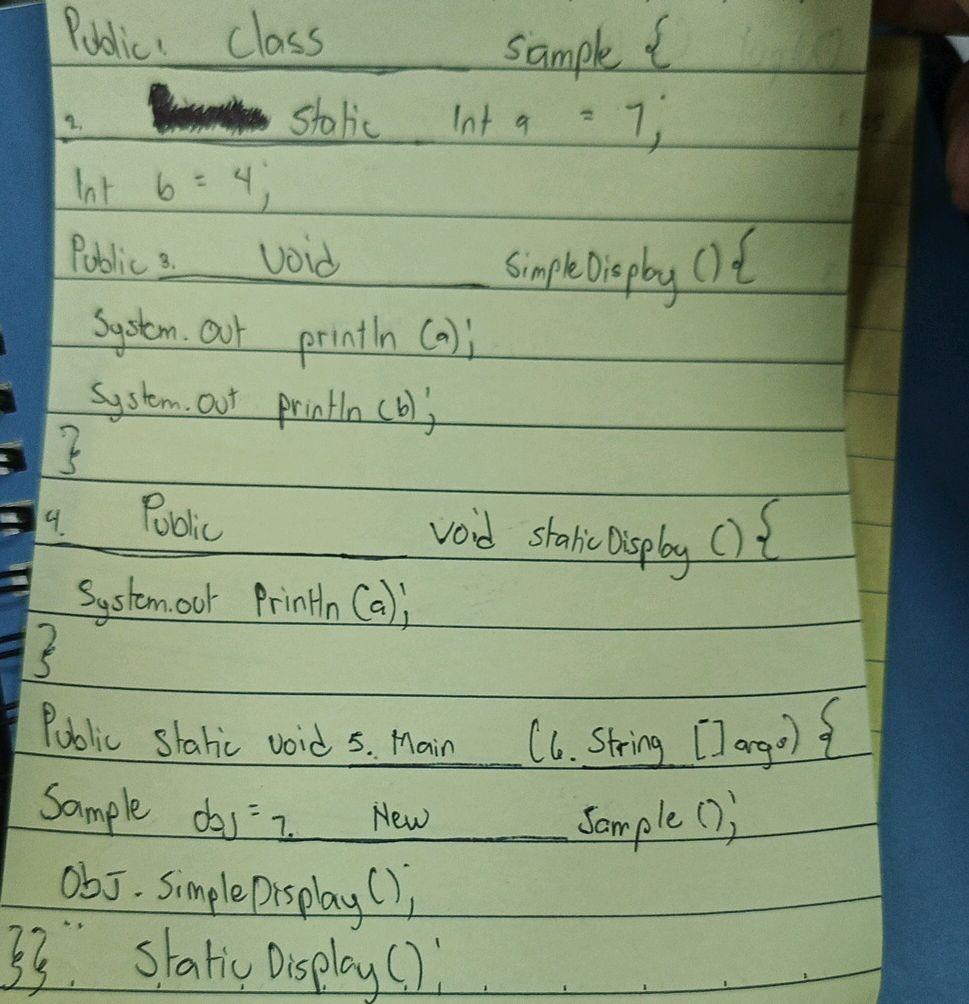 Public 1. Class Sample {
2. Static Int a = 7;
Int b = 4;
Public 3. Void SimpleDisplay () {
System.out println (a);
System.out println (b);
}
4. Public void staticDisplay () {
System.out Println (a);
}
Public static void 5. Main (6. String [] args) {
Sample obj = 7. New Sample ();
Obj. SimpleDisplay ();
}} Static Display ();